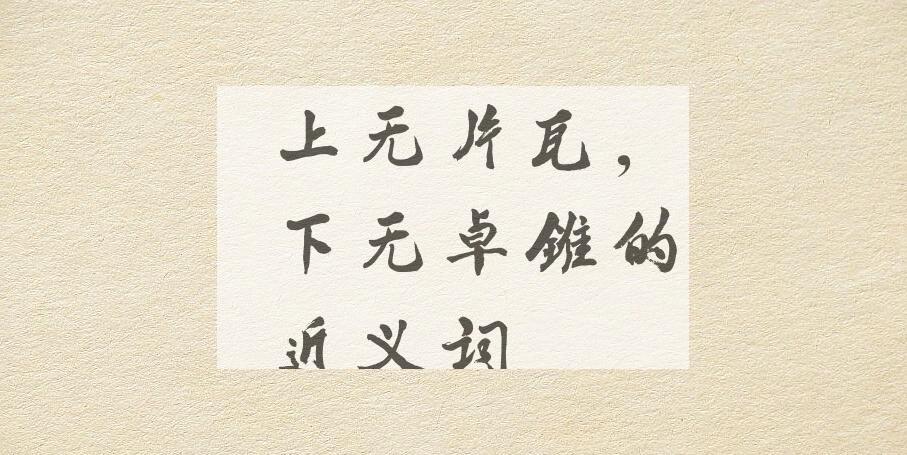 上无片瓦，
下无卓錐的
近义词